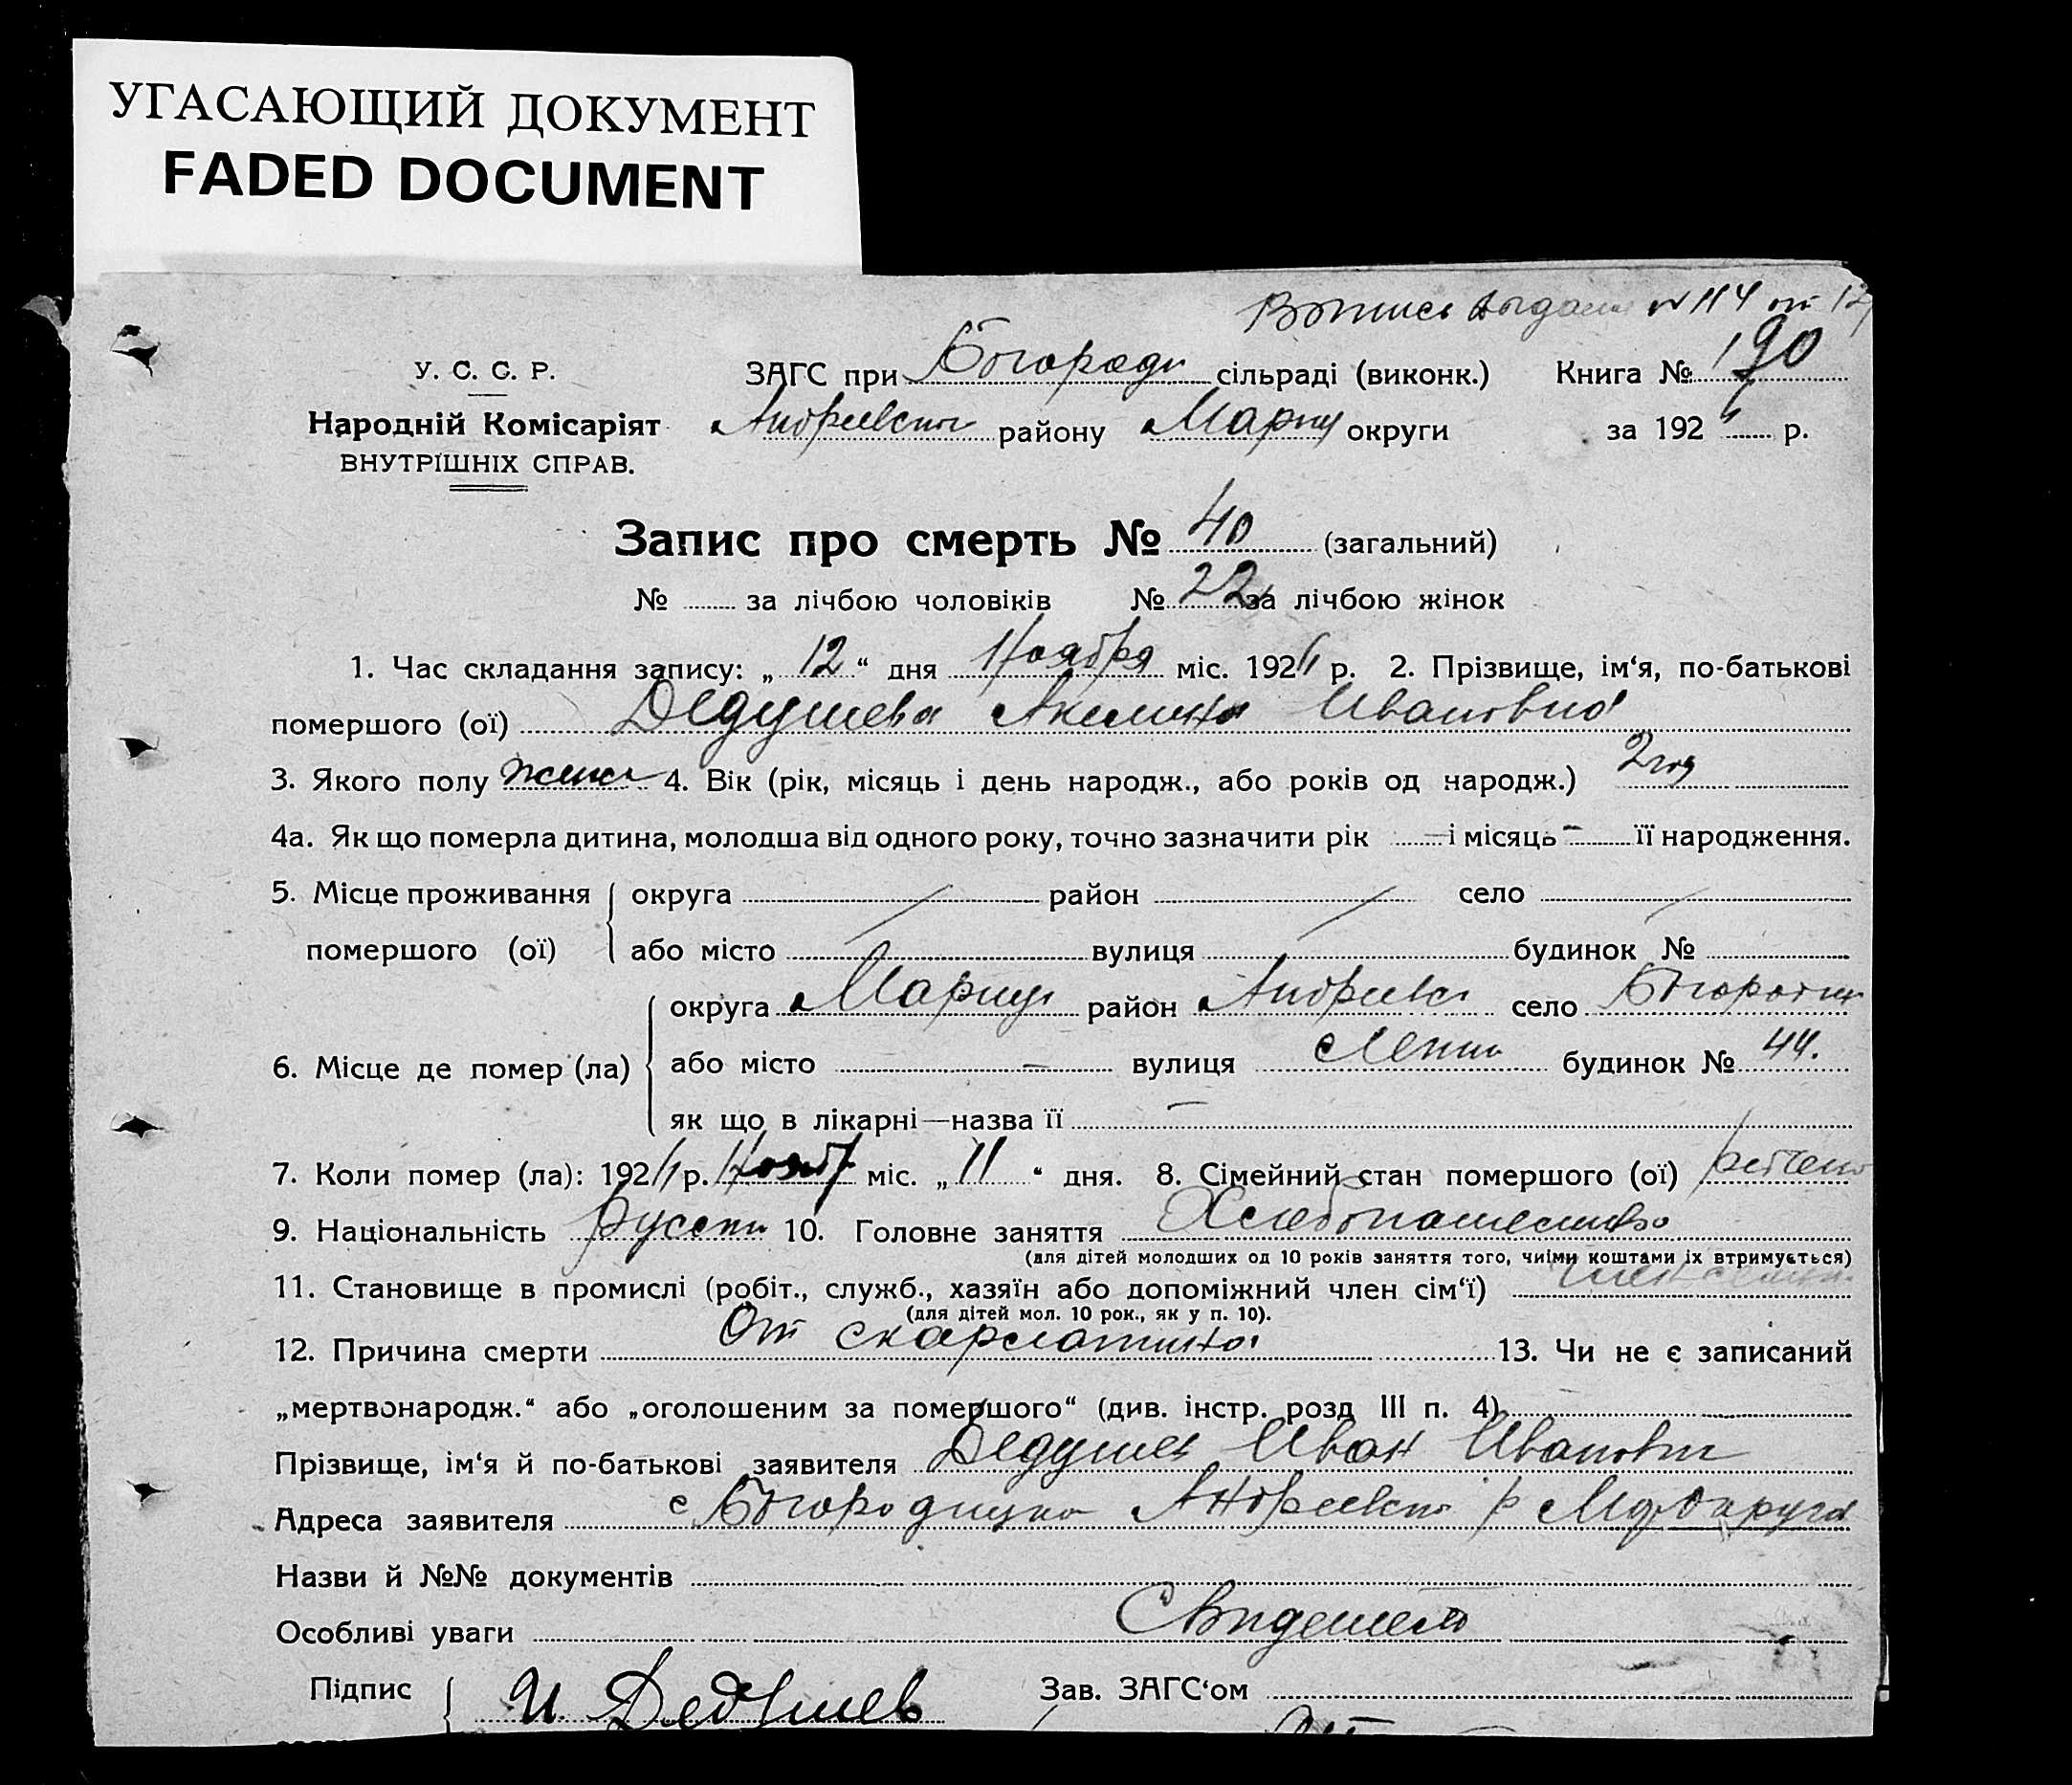 УГАСАЮЩИЙ ДОКУМЕНТ
FADED DOCUMENT
выдана № 114 от
У. С. С. Р.
ЗАГС при Богороди сільраді (виконк.) Книга № 190
Народній Комісаріят
Андреевског району Мариуп округи за 192 р.
ВНУТРІШНІХ СПРАВ.
Запис про смерть № 40 (загальний)
№ за лічбою чоловіків № 22 за лічбою жінок
1. Час складання запису: „ 12 “ дня Ноября міс. 192 р. 2. Прізвище, ім‘я, по-батькові
помершого (ої) Дедушева Акелина Ивановна
3. Якого полу женс 4. Вік (рік, місяць і день народж., або років од народж.) 2 год
4а. Як що померла дитина, молодша від одного року, точно зазначити рік — і місяць — її народження.
5. Місце проживання округа район село
помершого (ої) або місто вулиця будинок №
округа Мариуп район Андреевс село
6. Місце де помер (ла) або місто — вулиця Ленин будинок № 44.
як що в лікарні—назва її —
7. Коли помер (ла): 192 р. Нояб міс. „ 11 “ дня. 8. Сімейний стан помершого (ої)
9. Національність Русски 10. Головне заняття Хлебопашество
(для дітей молодших од 10 років заняття того, чиїми коштами їх втримується)
11. Становище в промислі (робіт., служб., хазяїн або допоміжний член сім‘ї) член семьи
(для дітей мол. 10 рок., як у п. 10).
12. Причина смерти От скарлатина 13. Чи не є записаний
„мертвонародж.“ або „оголошеним за помершого“ (див. інстр. розд III п. 4)
Прізвище, ім‘я й по-батькові заявителя Дедушев Иван Иванович
Адреса заявителя с Богородицко Андреевско р Мар округа
Назви й №№ документів
Особливі уваги Свидетель
Підпис И. Дедушев Зав. ЗАГС‘ом